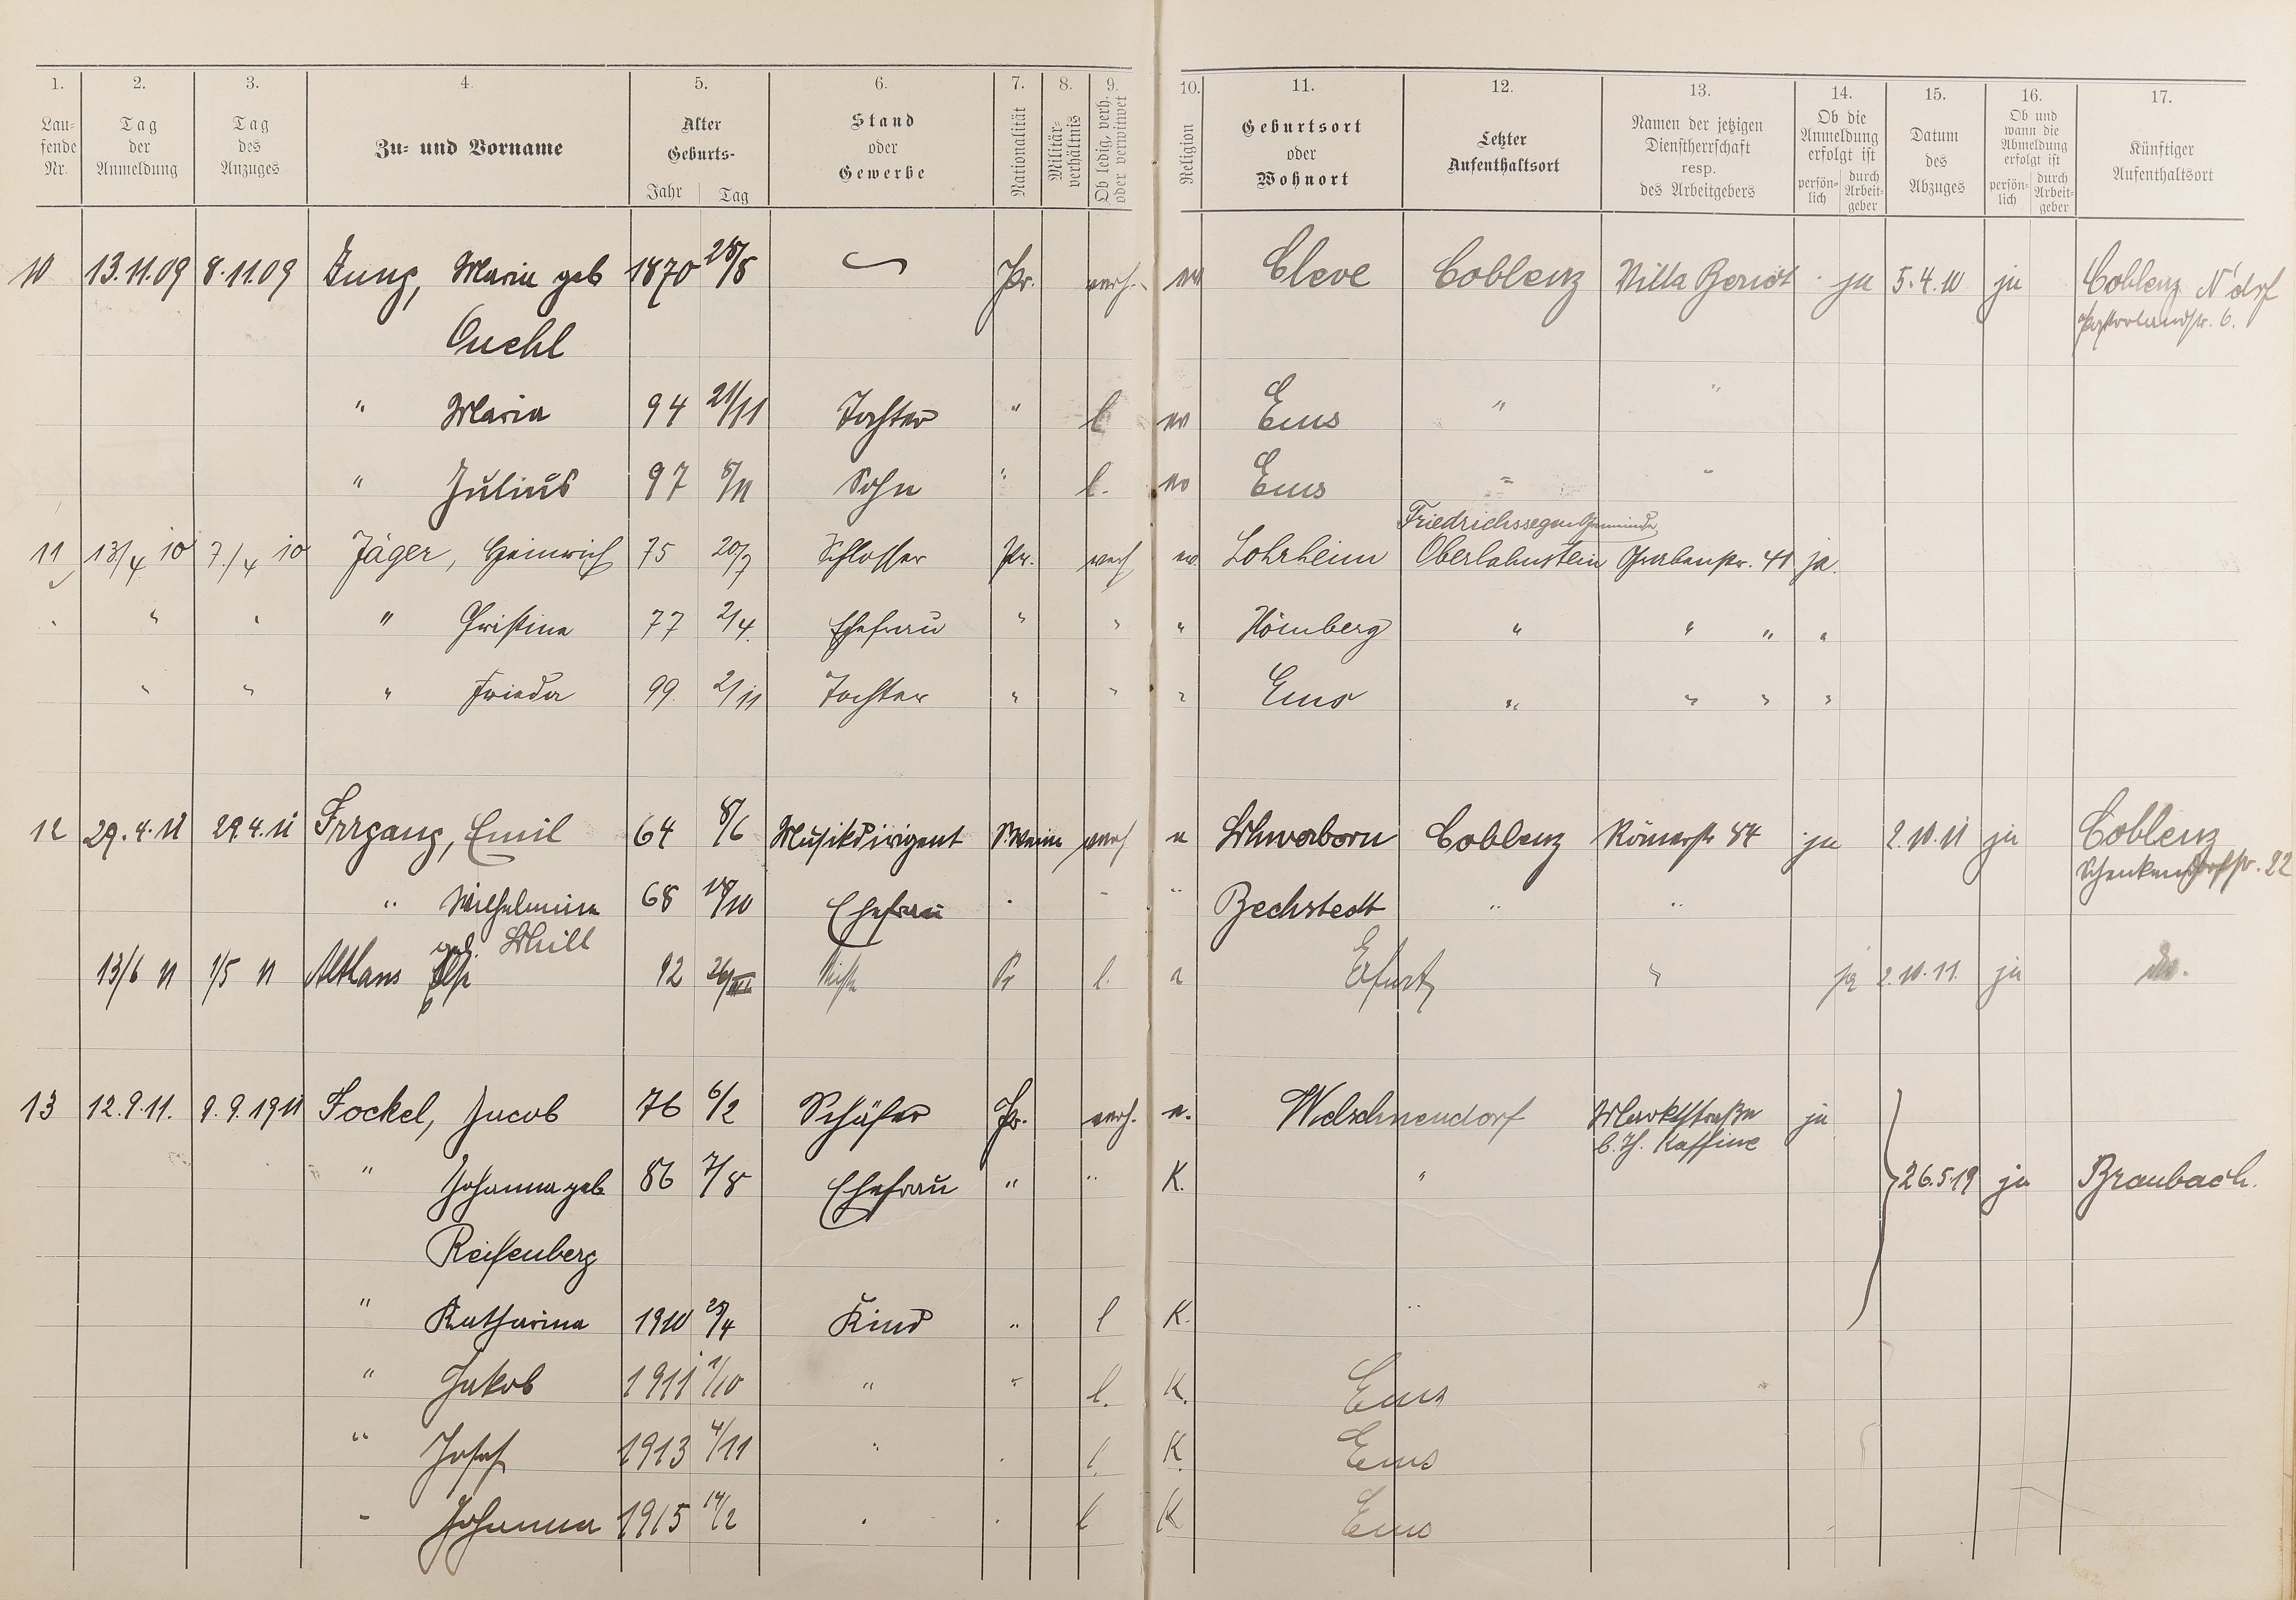 1. 2. 3. 4. 5. 6. 7. 8. 9. 10. 11. 12. 13. 14. 15. 16. 17.
Lau=
fende
Nr.
Tag
der
Anmeldung
Tag
des
Anzuges
Zu= und Vorname
Alter
Geburts-
Jahr Tag
Stand
oder
Gewerbe
Nationalität
Militär-
verhältnis
Ob ledig, verh.
oder verwitwet
Religion
Geburtsort
oder
Wohnort
Letzter
Aufenthaltsort
Namen der jetzigen
Dienstherrschaft
resp.
des Arbeitgebers
Ob die
Anmeldung
erfolgt ist
persön-
lich
durch
Arbeit-
geber
Datum
des
Abzuges
Ob und
wann die
Abmeldung
erfolgt ist
persön-
lich
durch
Arbeit-
geber
Künftiger
Aufenthaltsort
10 13.11.09 8.11.09 Jung, Maria geb 1870 28/8 Pr. verh. ev Cleve Coblenz Villa Beriot ja 5.4.10 ja Coblenz N'drf
6.
Quehl
" Maria 94 21/11 Tochter " l ev Ems " "
" Julius 97 8/11 Sohn " l. ev Ems " "
Friedrichssegen Gemeinde
11 13/4 10 7./4 10 Jäger, Heinrich 75 20/7 Schlosser Pr. verh ev. Lohrheim Oberlahnstein Grabenstr. 41 ja.
" " " " Christine 77 2/4. Ehefrau " " " Hömberg " " " "
" " " Frieda 99. 2/11 Tochter " " " Ems " " " "
12 29.4.11 29.4.11 Irrgang, Emil 64 8/6 Musikdirigent verh e Schwerborn Coblenz Römerstr 84 ja 2.10.11 ja Coblenz
Schenkendorfstr. 22
" Wilhelmine 68 /10 Ehefrau " " " Bechstedt " "
geb. Schill
13/6 11 1/5 11 Altlans Else 92 26/III Pr l. e Erfurt " ja 2.10.11. ja do.
13 12.9.11. 9.9.1911 Fockel, Jacob 76 6/2 Schäfer Pr. verh. e. Welschneudorf Marktstraße ja
b. Kaffine
" Johanna geb 86 7/8 Ehefrau " " K. " 26.5.19 ja Braubach.
Reifenberg
" Katharina 1910 /4 Kind " l K. "
" Jakob 1911 1/10 " " l. K. Ems
" Josef 1913 4/11 " " l. K. Ems
" Johanna 1915 14/2 " " l K Ems